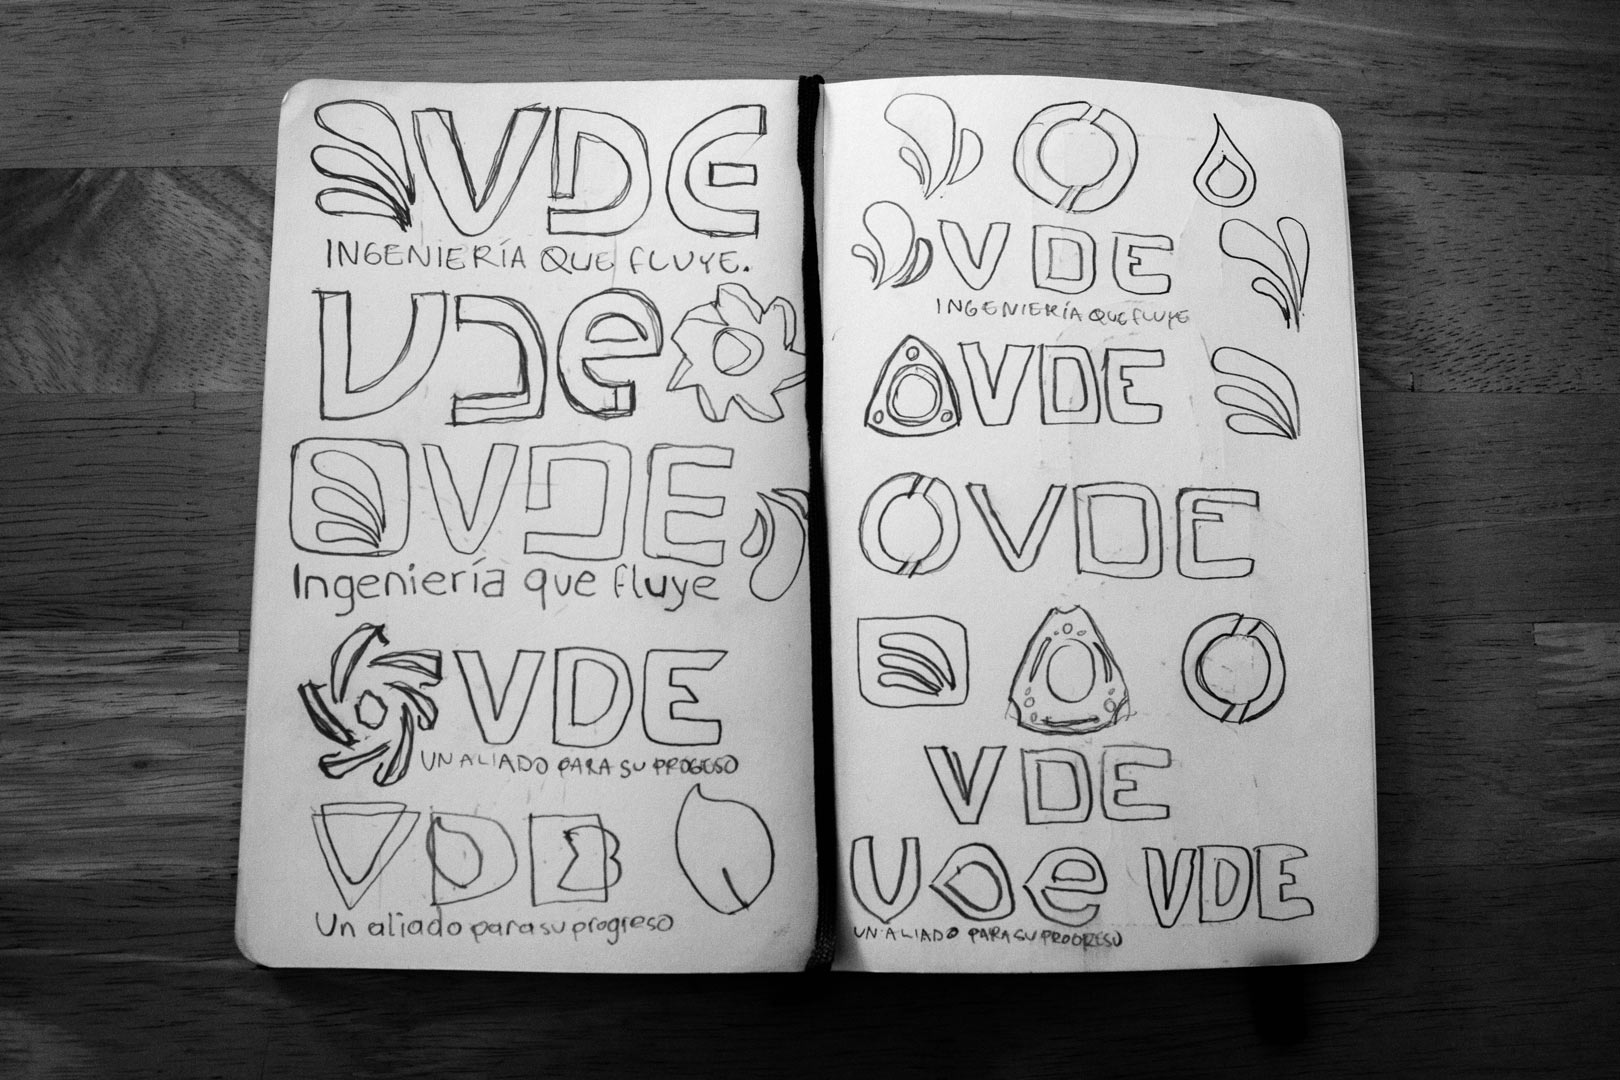 VDE
INGENIERÍA QUE FLUYE.
VDe
VDE
Ingeniería que fluye
VDE
UN ALIADO PARA SU PROGESO
VDE
Un aliado para su progreso
VDE
INGENIERÍA QUE FLUYE
VDE
VDE
VDE
VDe VDE
UN ALIADO PARA SU PROGRESO